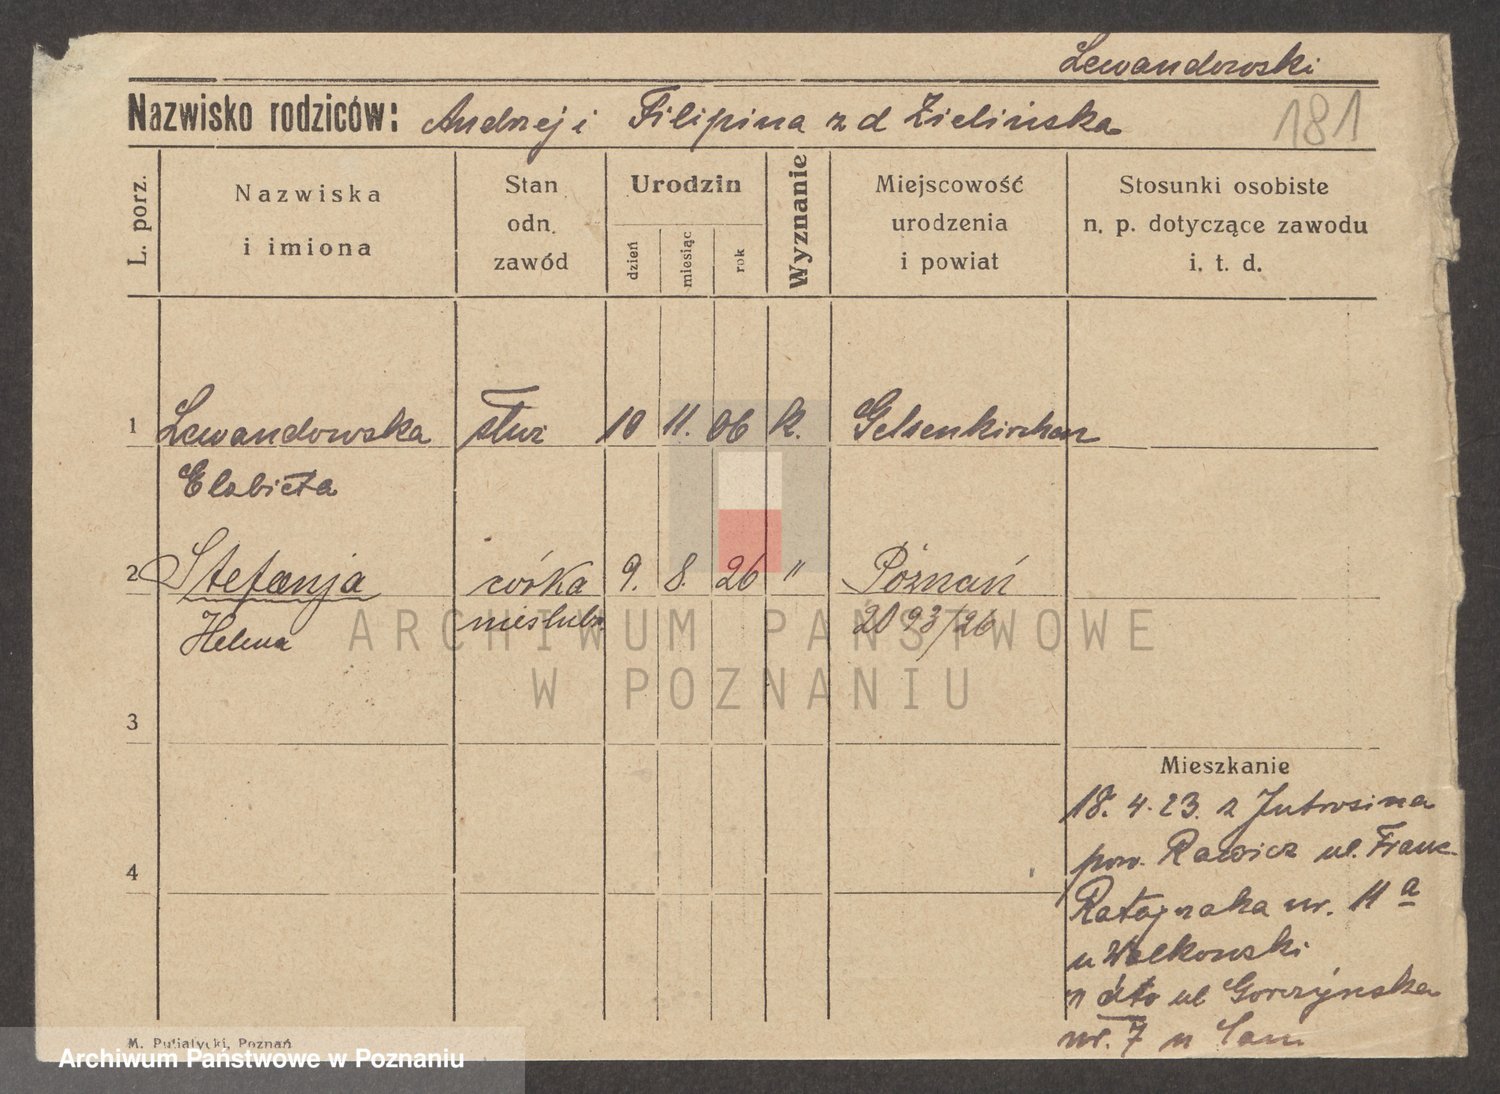 Lewandowski
Nazwisko rodziców: Andrzej i Filipina z d Zielińska
181
L. porz.
Nazwiska
i imiona
Stan
odn.
zawód
Urodzin
dzień
miesiąc
rok
Wyznanie
Miejscowość
urodzenia
i powiat
Stosunki osobiste
n. p. dotyczące zawodu
i. t. d.
1 Lewandowska służ 10 11. 06 k. Gelsenkirchen
Elżbieta
2 Stefanja córka 9. 8. 26 " Poznań
Helena nieślubn. 2093/26
ARCHIWUM PAŃSTWOWE
W POZNANIU
3
Mieszkanie
18. 4. 23. z Jutrosina
pow. Rawicz ul. Franc.
4
Ratajczaka nr. 11 a
u Walkowski
dto ul Gorczyńska
nr. 7 u
M. Putiatycki, Poznań
Archiwum Państwowe w Poznaniu